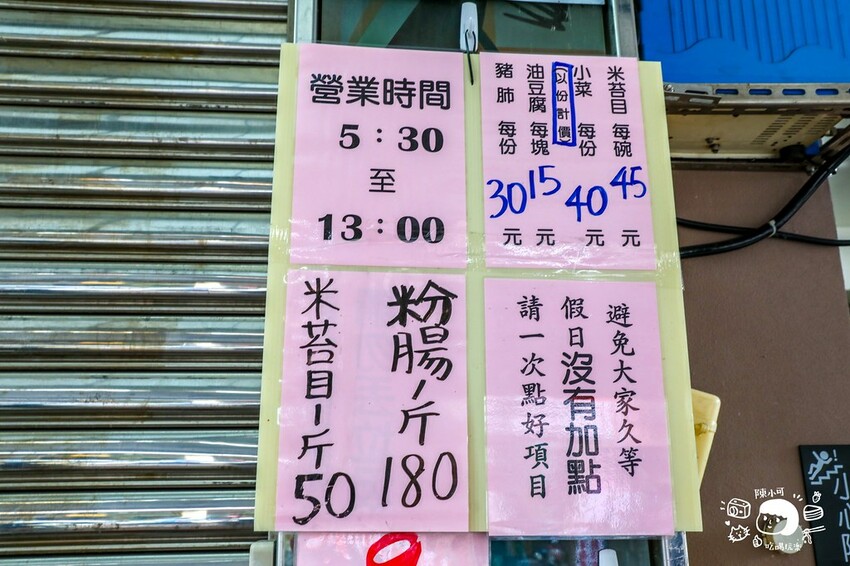 營業時間
5：30
至
13：00
米苔目 每碗 45 元
小菜 每份 40 元
(以份計價)
油豆腐 每塊 15 元
豬肺 每份 30 元
粉腸1斤180
米苔目1斤50
避免大家久等
假日沒有加點
請一次點好項目
小心
陳小可
吃喝玩樂